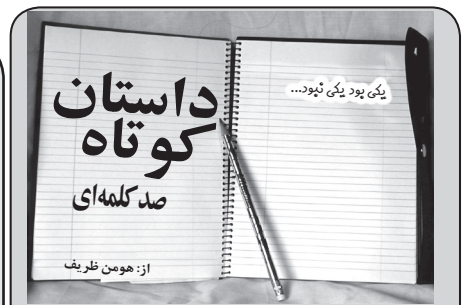 یکی بود یکی نبود...
داستان
کوتاه
صد کلمه‌ای
از: هومن ظریف